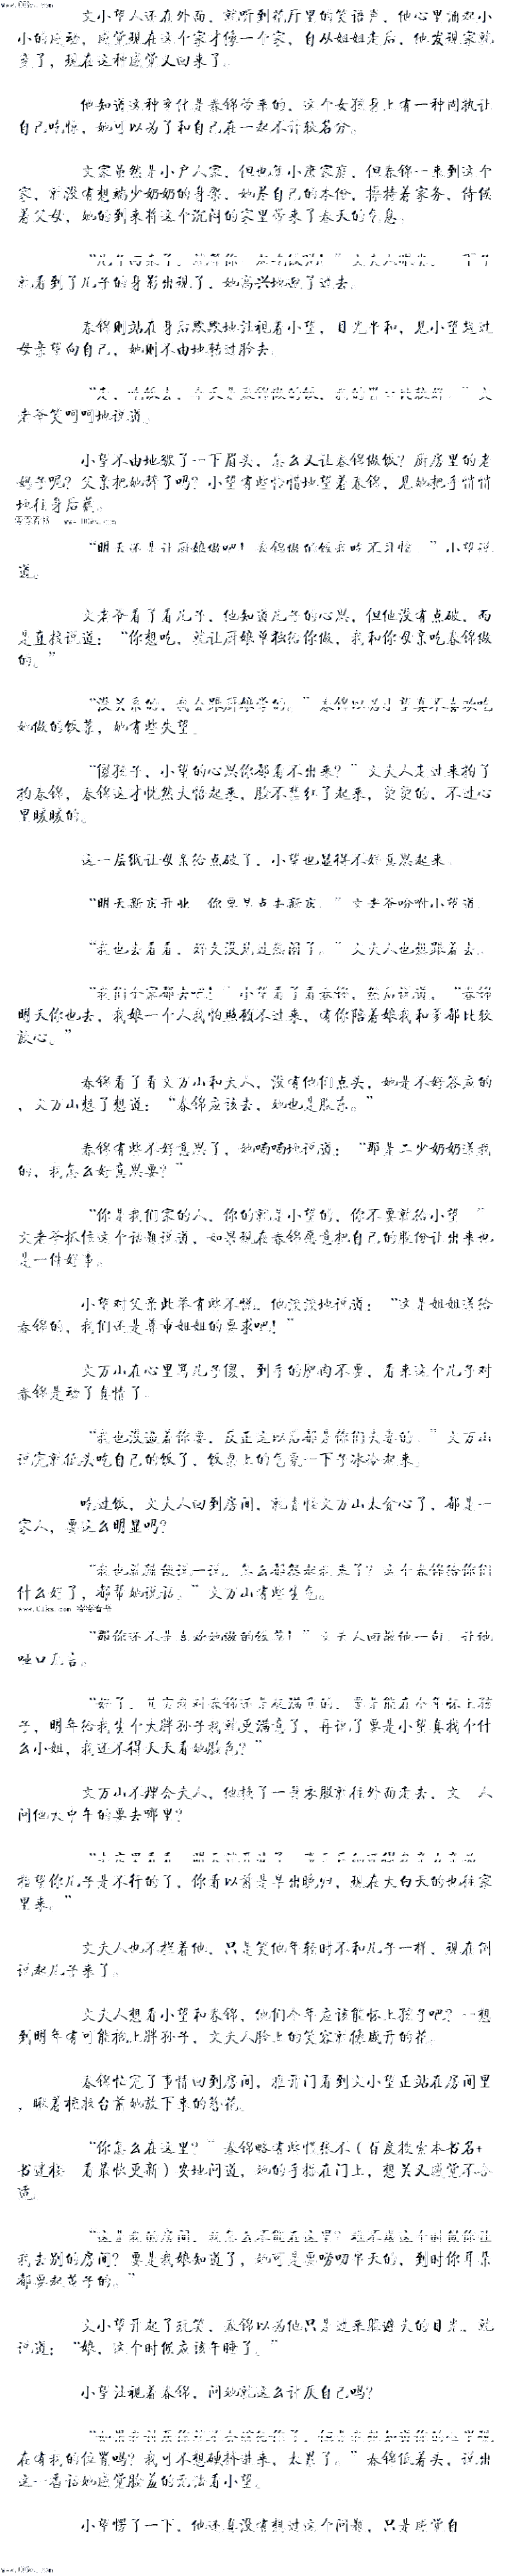 www.00kw.com
文小望人还在外面，就听到花厅里的笑语声，他心里涌起小
小的感动，感觉现在这个家才像一个家，自从姐姐走后，他发现家就
变了，现在这种感觉又回来了。
他知道这种变化是春锦带来的，这个女孩身上有一种固执让
自己吃惊，她可以为了和自己在一起不计较名分。
文家虽然是小户人家，但也算小康家庭，但春锦一来到这个
家，就没有想端少奶奶的身架，她尽自己的本份，操持着家务，侍候
着父母，她的到来将这个沉闷的家里带来了春天的气息。
就看到了儿子的身影出现了，她高兴地迎了过去。
春锦则站在身后默默地注视着小望，目光平和，见小望越过
母亲望向自己，她则不由地转过脸去。
老爷笑呵呵地说道。
小望不由地皱了一下眉头，怎么又让春锦做饭？厨房里的老
妈子呢？父亲把她辞了吗？小望有些怜惜地望着春锦，见她把手悄悄
地往身后藏。
“明天还是让厨娘做吧！春锦做的饭我吃不习惯。”小望说
道。
文老爷看了看儿子，他知道儿子的心思，但他没有点破，而
是直接说道：“你想吃，就让厨娘单独给你做，我和你母亲吃春锦做
的。”
“没关系的，我会跟厨娘学的。”春锦以为小望真不喜欢吃
她做的饭菜，她有些失望。
“傻孩子，小望的心思你都看不出来？”文夫人走过来拍了
拍春锦，春锦这才恍然大悟起来，脸不禁红了起来，烫烫的，不过心
里暖暖的。
这一层纸让母亲给点破了，小望也显得不好意思起来。
“明天新店开业，你要早点去新店。”文老爷吩咐小望道。
“我也去看看，好久没见过热闹了。”文夫人也想跟着去。
“我们全家都去吧！”小望看了看春锦，然后说道，“春锦
明天你也去，我娘一个人我怕照顾不过来，有你陪着娘我和爹都比较
放心。”
春锦看了看文万山和夫人，没有他们点头，她是不好答应的
，文万山想了想道：“春锦应该去，她也是股东。”
春锦有些不好意思了，她喃喃地说道：“那是二少奶奶送我
的，我怎么好意思要？”
“你是我们家的人，你的就是小望的，你不要就给小望。”
文老爷抓住这个话题说道，如果现在春锦愿意把自己的股份让出来也
是一件好事。
小望对父亲此举有些不悦，他淡淡地说道：“这是姐姐送给
春锦的，我们还是尊重姐姐的要求吧！”
文万山在心里骂儿子傻，到手的肥肉不要，看来这个儿子对
春锦是动了真情了。
“我也没逼着你要，反正这以后都是你们夫妻的。”文万山
说完就低头吃自己的饭了，饭桌上的气氛一下子冰冷起来。
吃过饭，文夫人回到房间，就责怪文万山太贪心了，都是一
家人，要这么明显吗？
什么好了，都帮她说话。”文万山有些生气。
“那你还不是喜欢她做的饭菜！”文夫人回敬他一句，让他
哑口无言。
子，明年给我生个大胖孙子我就更满意了，再说了要是小望真找个什
么小姐，我还不得天天看她脸色？”
文万山不理会夫人，他换了一身衣服就往外面走去，文 人
问他大中午的要去哪里？
指望你儿子是不行的了，你看以前是早出晚归，现在大白天的也往家
里来。”
文夫人也不拦着他，只是笑他年轻时不和儿子一样，现在倒
说起儿子来了。
文夫人想着小望和春锦，他们今年应该能怀上孩子吧？一想
到明年有可能抱上胖孙子，文夫人脸上的笑容就像盛开的花。
春锦忙完了事情回到房间，推开门看到文小望正站在房间里
，瞅着梳妆台前她放下来的簪花。
“你怎么在这里？”春锦略有些慌张不（百度搜索本书名+
书迷楼 看最快更新）安地问道，她的手搭在门上，想关又感觉不合
适。
我去别的房间？要是我娘知道了，她可是要唠叨半天的，到时你耳朵
都要起茧子的。”
文小望开起了玩笑，春锦以为他只是过来躲避大的日光，就
说道：“娘，这个时候应该午睡了。”
小望注视着春锦，问她就这么讨厌自己吗？
在有我的位置吗？我可不想硬挤进来，太累了。”春锦低着头，说出
这一番话她感觉脸羞的无法看小望。
小望愣了一下，他还真没有想过这个问题，只是感觉自
www.00kw.com